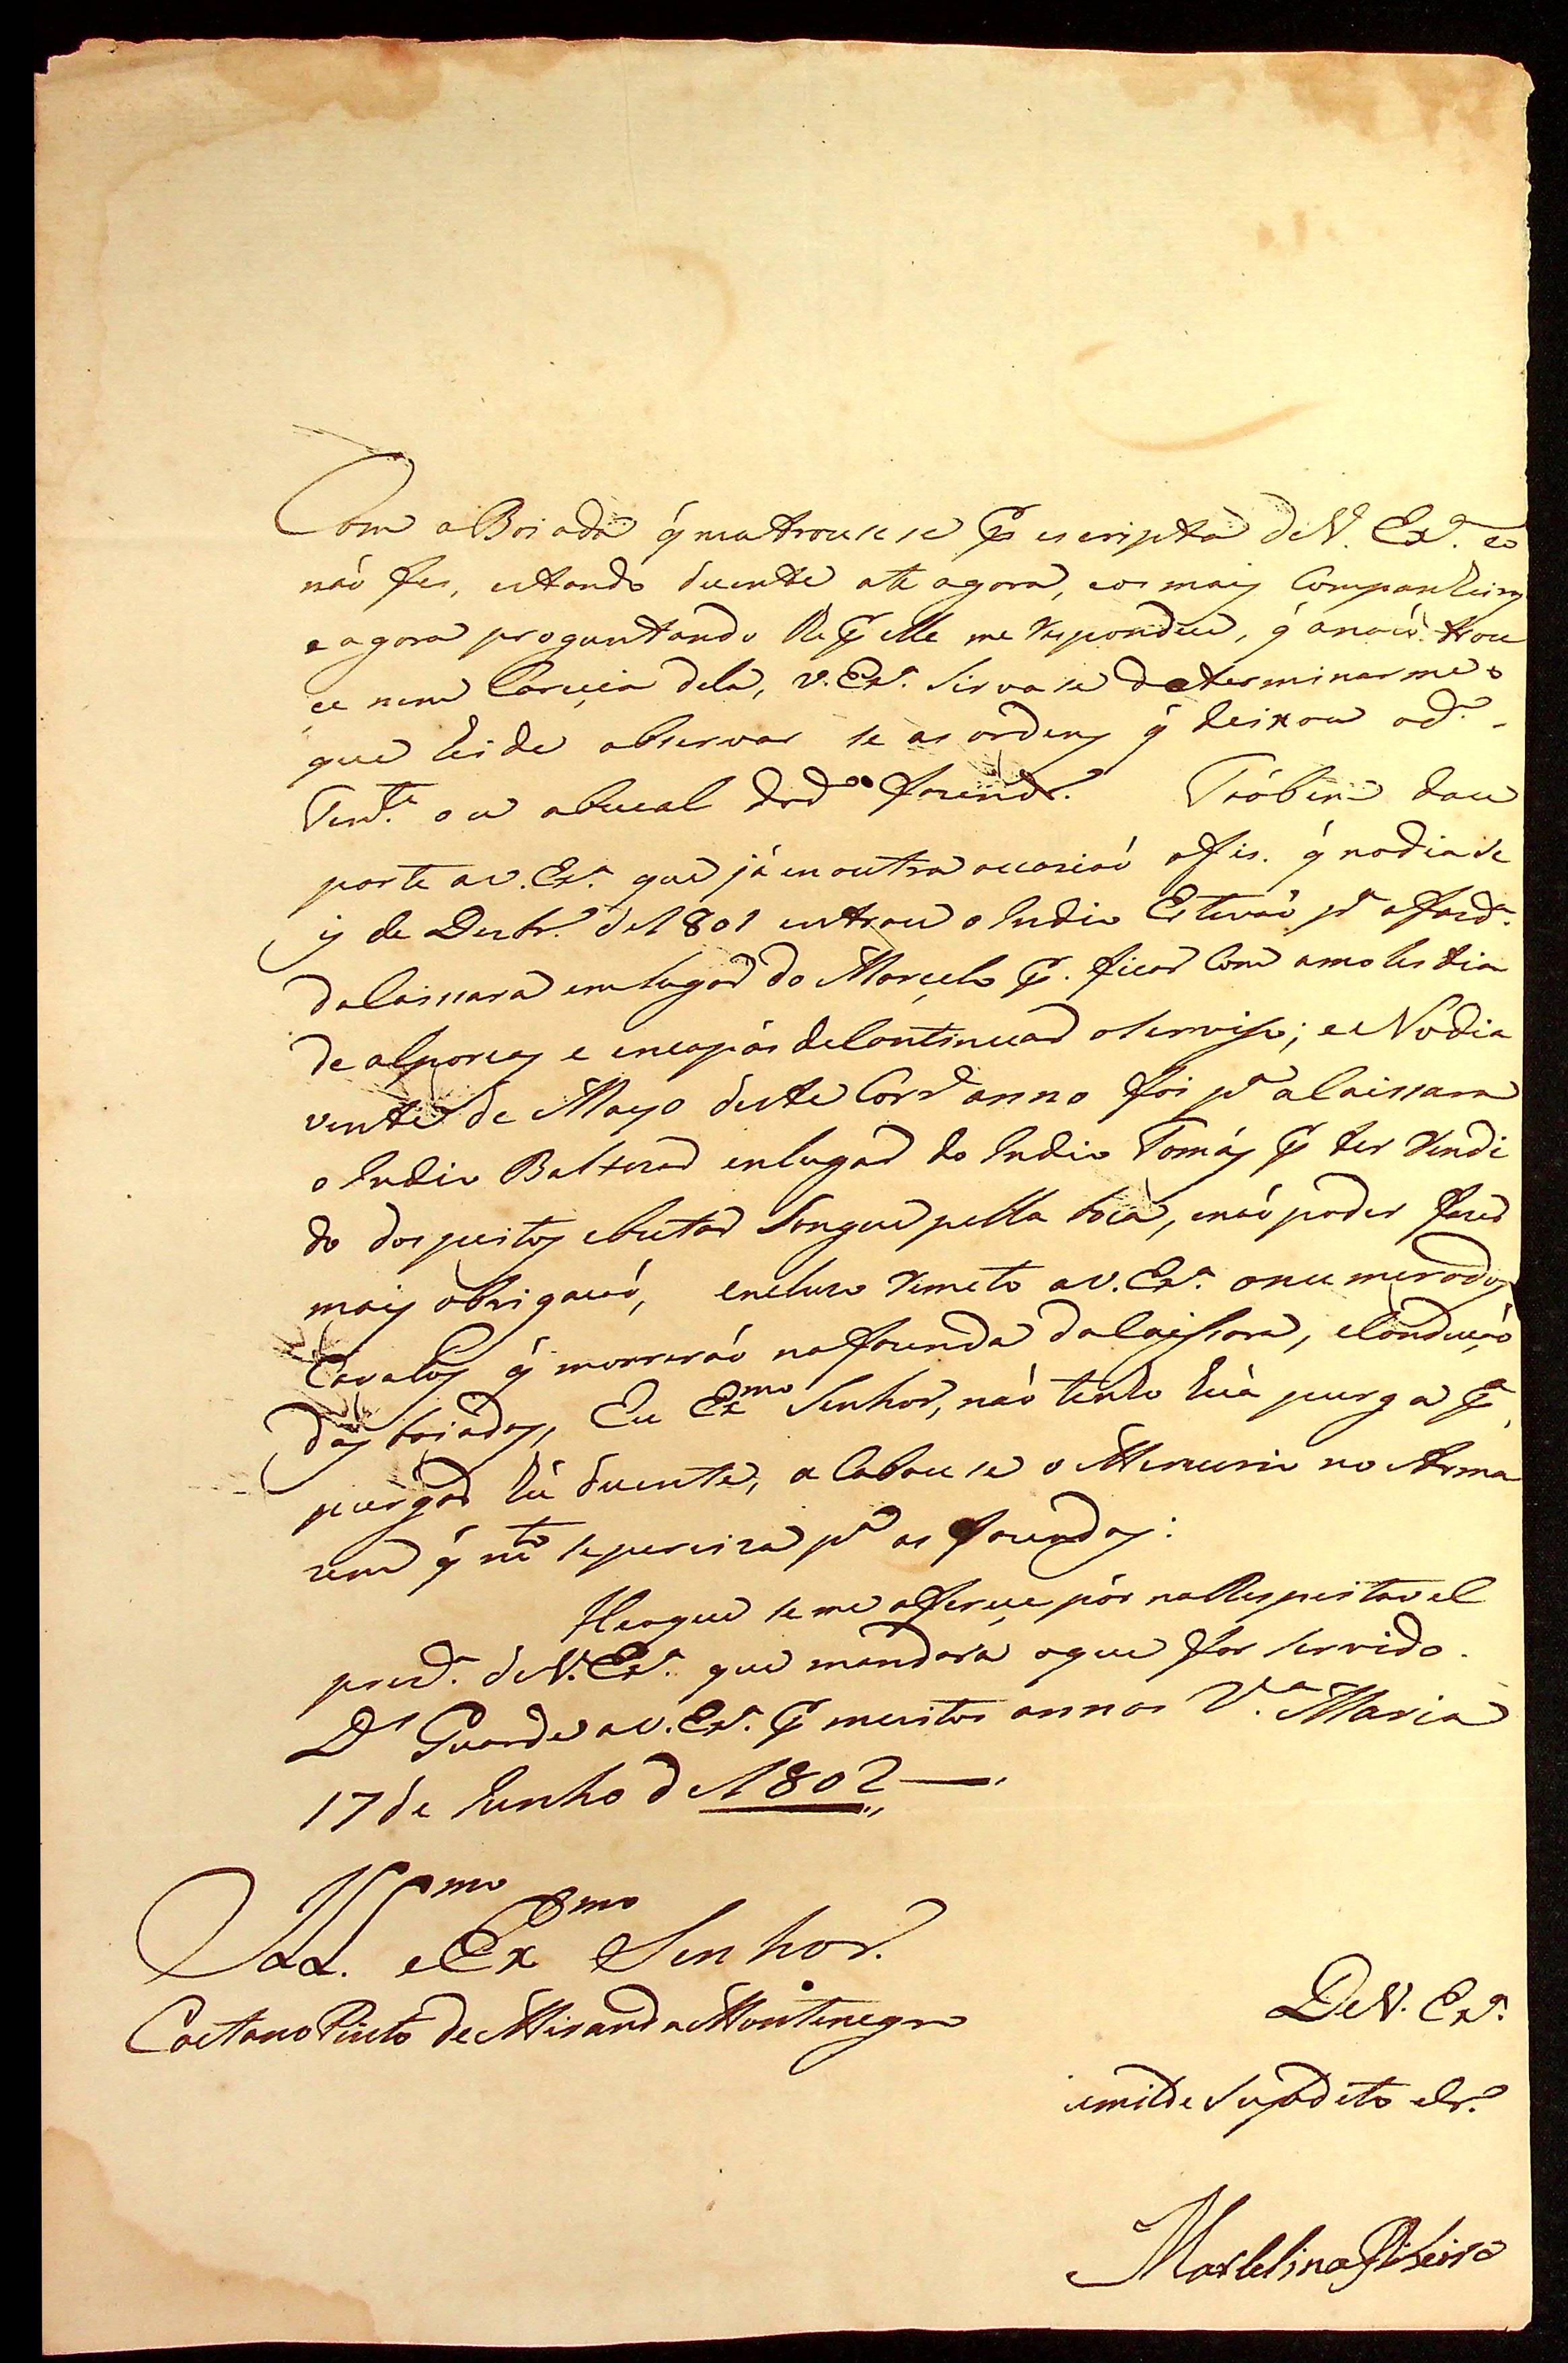 Com aBoiada q̃ meatrouxese p̃ escripta deV. Exª. eo
não fes, estando duente ate agora, eos mais Companheiros
e agora proguntando lhe p̃ elle me respondeu, q̃ anaõ trou
ce nem Careçia dela, V. Exª. sirva se determinarme o
que hei de observar se as ordens q̃ deixou od.º
Tenᵗᵉ. ou abucal dad.ª fazendª. Táobem dou
parte aV. Exª. que já em outra occasiaõ ofis. q̃ nodia de
is de Dezbrº. de1801 entrou o Indio Estevaõ pª afazdª.
daCaissara emlugar do Marçelo p̃. ficar Com amolestia
de alporcas e encapás deContinuar oserviso; ee Nodia
vente de Mayo deste Corrᵉ anno foi pª aCaissara
o Indio Baltezar enlugar do Indio Tomás p̃ ter rendi
do dos peitos ebutar Sangue pella boca, enaõ poder fazer
mais obrigaçaõ, encluzo remeto aV. Exª. onumerodos
Cavalos q̃ morreraõ nafazenda daCaissara, eConduçaõ
das boiadas, Eu Exᵐᵒ Senhor, naõ tenho huá purga pª
purgar hú duente, aCabouse o Mercurio no Arma
zem q̃ mᵗᵒ seperciza pª as fazendas:
Heoque seme oferece pór naRespeitavel
prezª. deV. Exª. que mandará oque for servido.
Dˢ Guarde aV. Exª. p̃ muitos annos Vª. Maria
17 de Junho de1802
Illᵐᵒ. eExᵐᵒ Senhor.
Caetano Pinto de Miranda Montenegro
DeV. Exª.
umilde Supdeto eCrº.
Marcelino Ribeiro